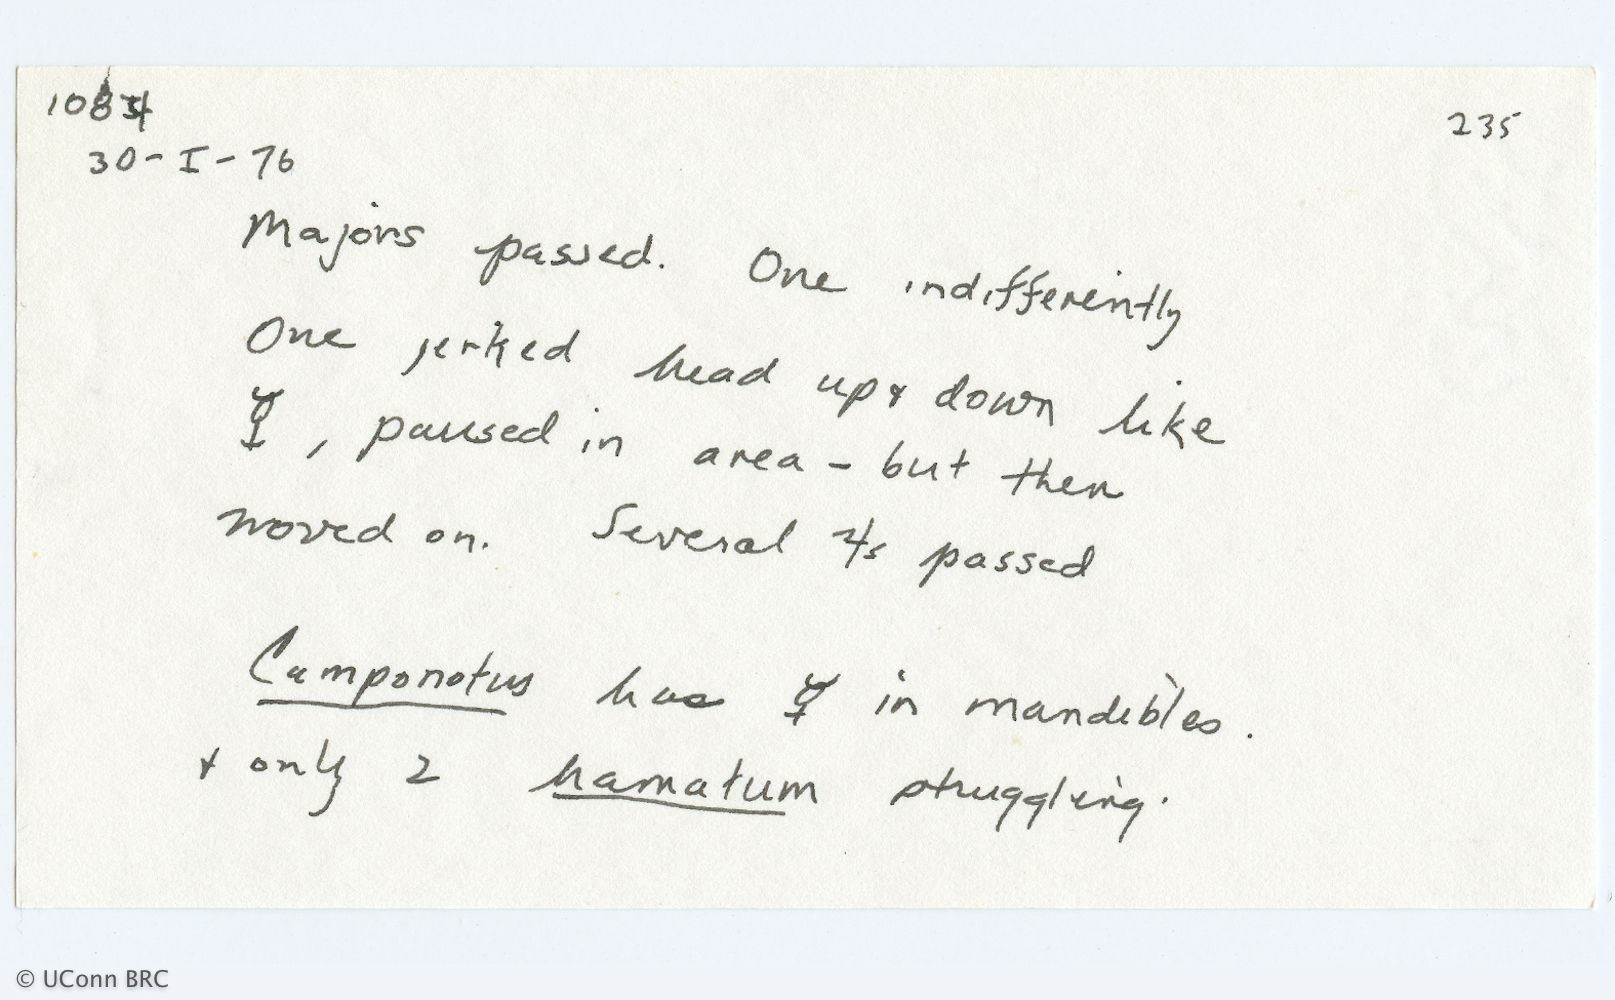 1084
235
30-I-76
Majors passed. One indifferently
One jerked head up & down like
☿, paused in area - but then
moved on. Several ♃s passed
Camponotus has ☿ in mandibles.
& only 2 hamatum struggling.
© UConn BRC